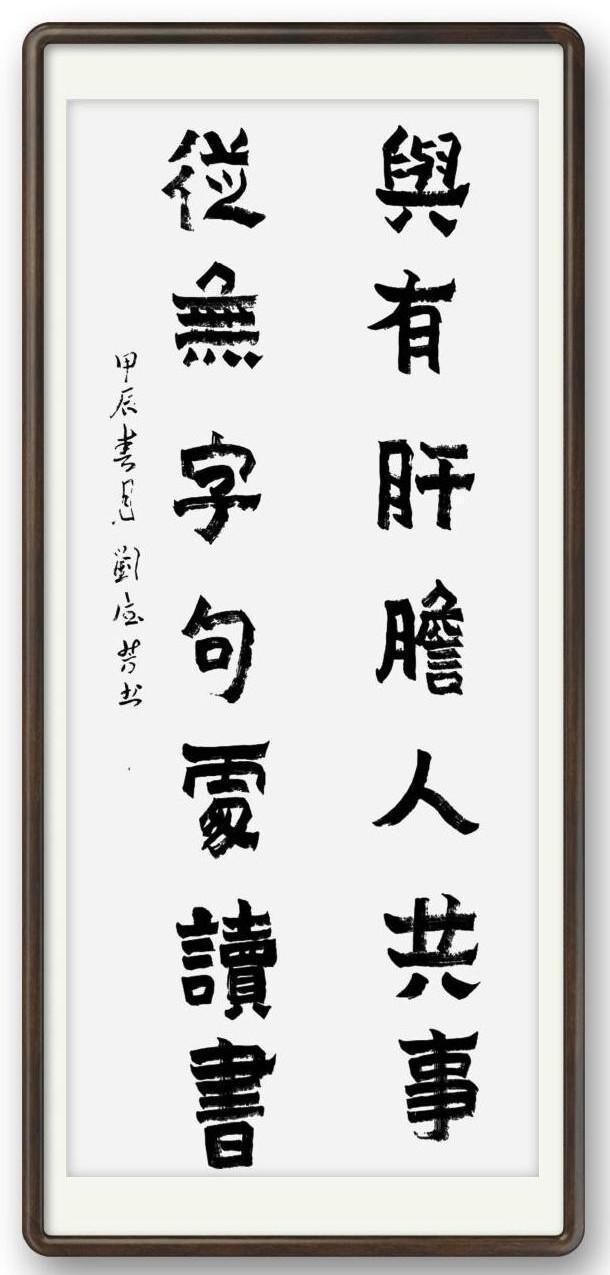 與有肝膽人共事
從無字句處讀書
甲辰春月劉宏芳书